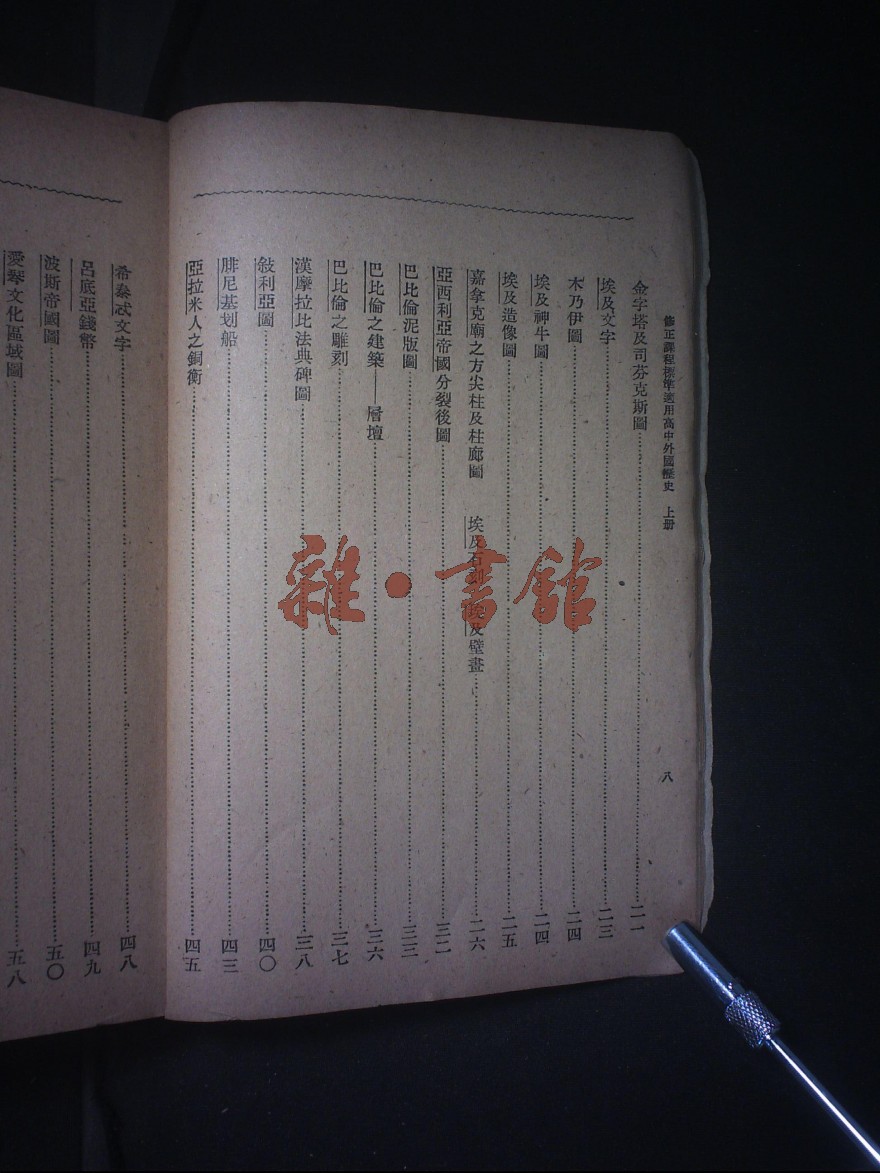 修正課程標準適用高中外國歷史　上册
八
金字塔及司芬克斯圖……二一
埃及文字……二三
木乃伊圖……二四
埃及神牛圖……二四
埃及造像圖……二五
嘉拿克廟之方尖柱及柱廊圖　埃及石　埃及壁畫……二六
亞西利亞帝國分裂後圖……三二
巴比倫泥版圖……三三
巴比倫之建築——層壇……三六
巴比倫之雕刻……三七
漢摩拉比法典碑圖……三八
敍利亞圖……四〇
腓尼基划船……四三
亞拉米人之銅衡……四五
希泰忒文字……四八
呂底亞錢幣……四九
波斯帝國圖……五〇
愛琴文化區域圖……五八
雜·書館